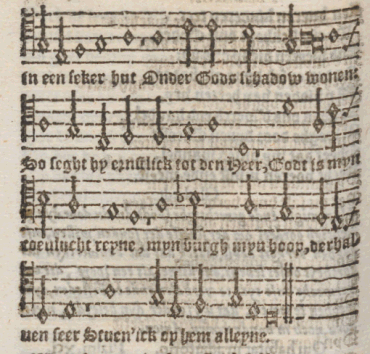 in een seker hut Onder Gods schadow wonent
So seght hy ernstlick tot den Heer, Godt is myn
toevlucht reyne, myn burgh myn hoop, derhal
uen seer Stuen'ick op hem alleyne.